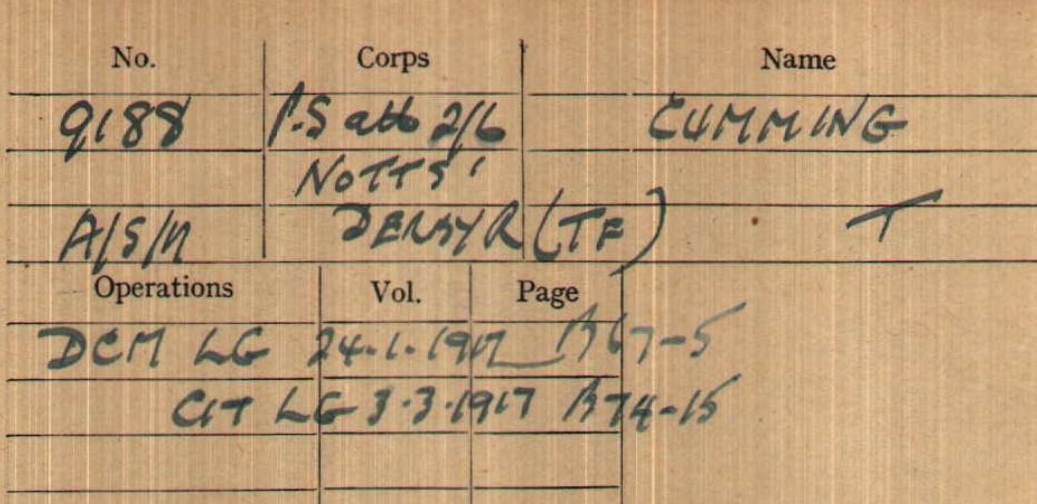 No. Corps Name
9188 I.S att 2/6 CUMMING
NOTTS'
A/S/M DERBYR (TF) T
Operations Vol. Page
DCM LG 24.1.1917 B67-5
CIT LG 3.3.1917 B74-15